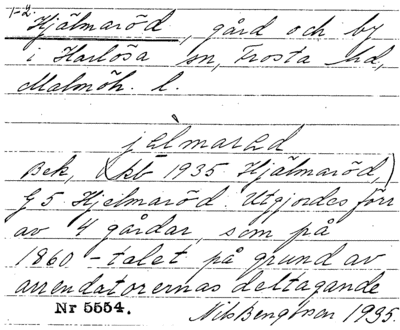 1-2.
Hjälmaröd, gård och by
i Harlösa sn, Frosta hd,
Malmöh. l.
jèlmarəd
Bek, (kb 1935 Hjälmaröd,)
G 5 Hjelmaröd. Utgjordes förr
av 4 gårdar, som på
1860-talet på grund av
arrendatorernas deltagande
Nr 5554. Nils Bengtsson 1935.